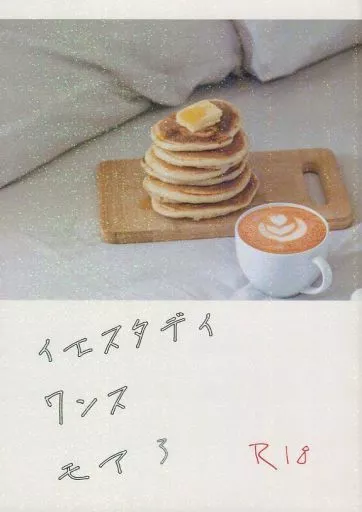 イエスタデイ
ワンス
モア3
R18